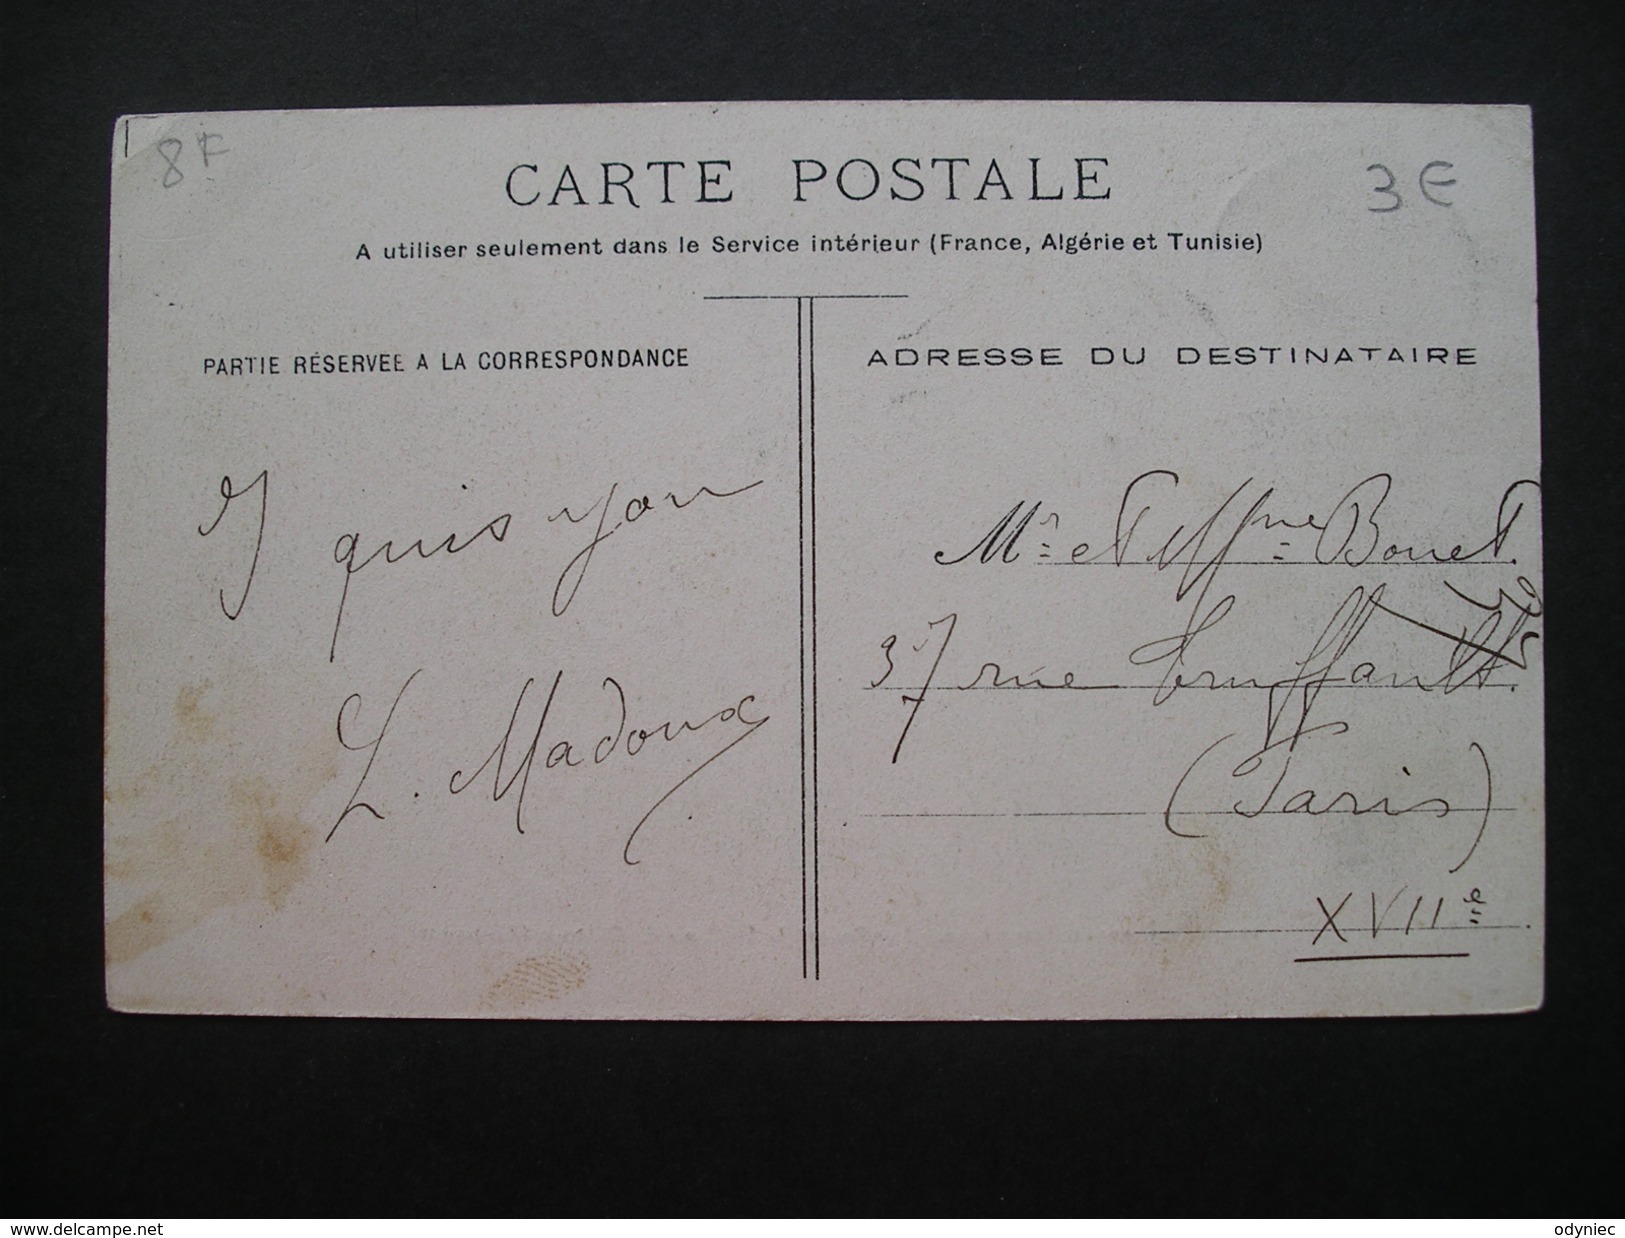 8F
3 €
CARTE POSTALE
A utiliser seulement dans le Service intérieur (France, Algérie et Tunisie)
PARTIE RÉSERVEE A LA CORRESPONDANCE
I quis you
L. Madoux
ADRESSE DU DESTINATAIRE
Mr et Mme Bouet.
37 rue Truffault.
(Paris)
XVII
www.delcampe.net
odyniec